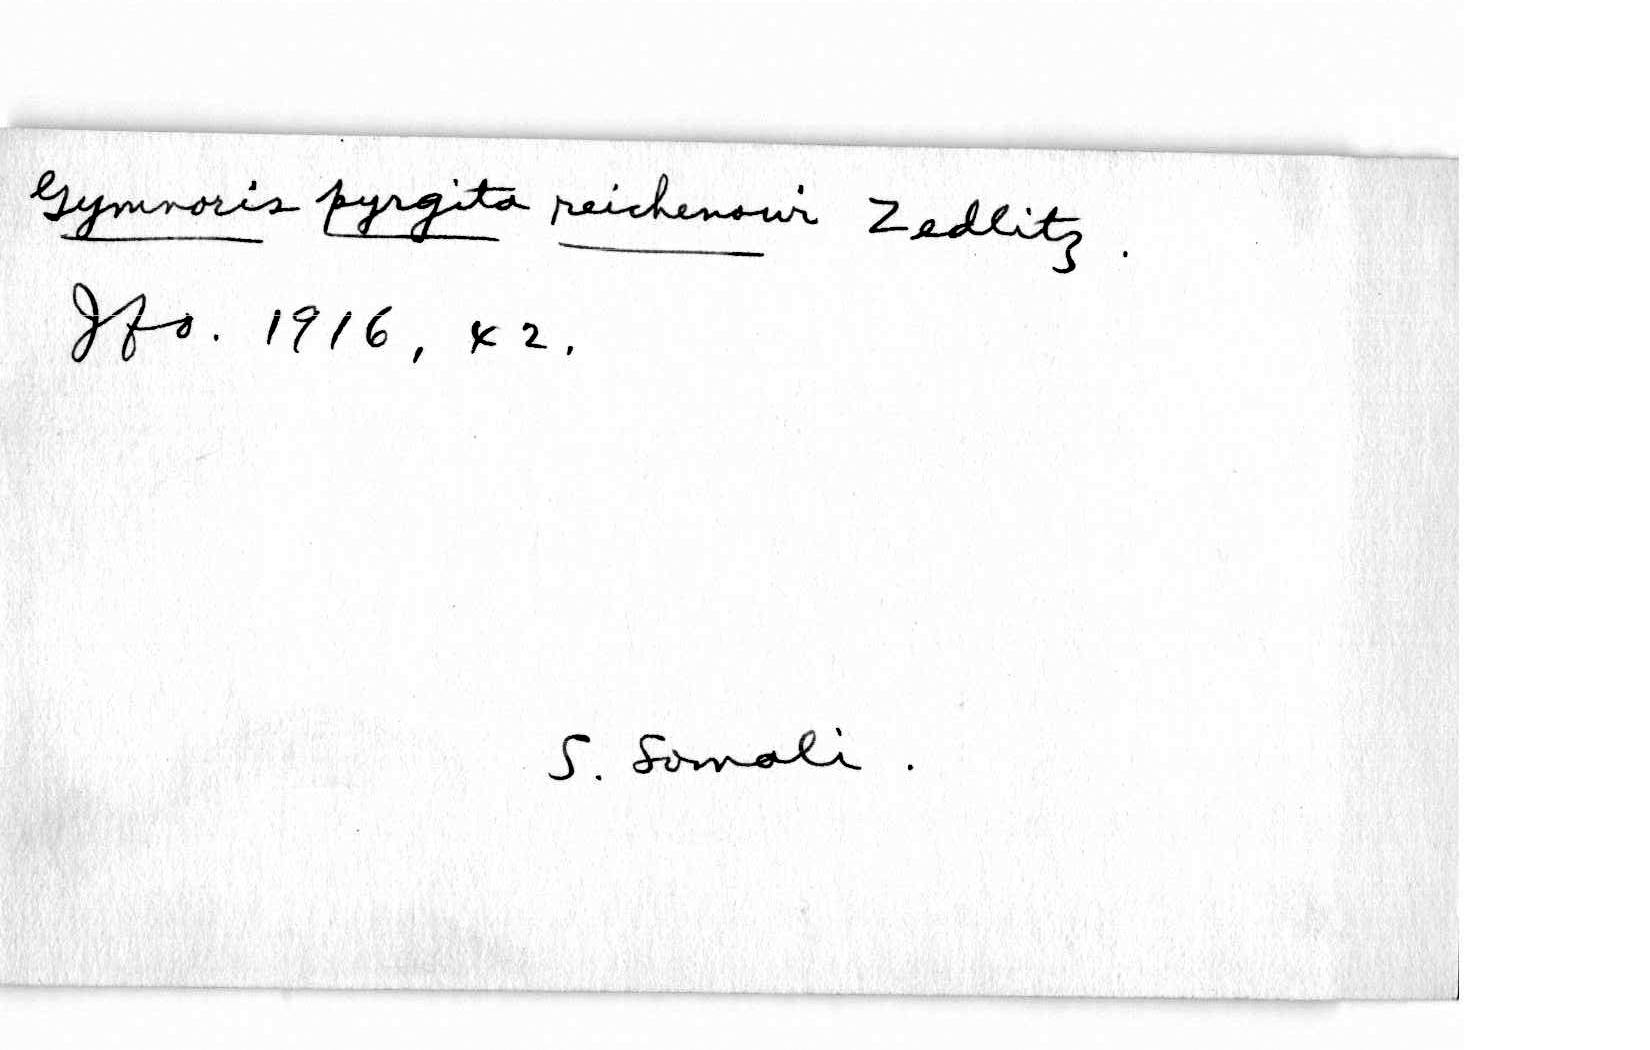 Gymnoris pyrgita reichenowi Zedlitz.
Jfo. 1916, x 2.
S. Somali.